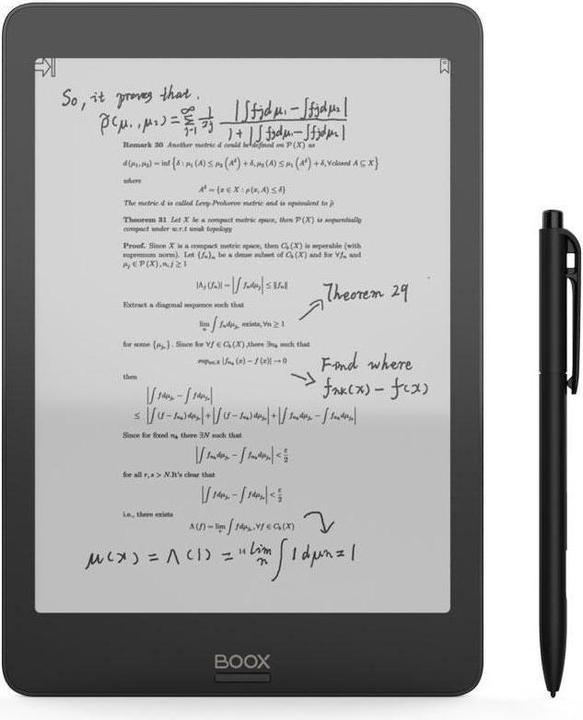 So, it proves that.
ρ̂(μ₁, μ₂) = ∑_{j=1}^{∞} 1/2j |∫fjdμ₁ − ∫fjdμ₂| / 1 + |∫fjdμ₁ − ∫fjdμ₂|
Remark 30 Another metric d could be defined on P(X) as
d(μ₁, μ₂) = inf {δ : μ₁(A) ≤ μ₂(A^δ) + δ, μ₂(A) ≤ μ₁(A^δ) + δ, ∀closed A ⊆ X}
where
A^δ = {x ∈ X : ρ(x, A) ≤ δ}
The metric d is called Levy-Prohorov metric and is equivalent to ρ̂
Theorem 31 Let X be a compact metric space, then P(X) is sequentially
compact under w.r.t weak topology
Proof. Since X is a compact metric space, then C_b(X) is seperable (with
supremum norm). Let {f_n}_n be a dense subset of C_b(X) and for ∀f_n and
μ_j ∈ P(X), n, j ≥ 1
|Λ_j(f_n)| = |∫ f_n dμ_j| ≤ ‖f_n‖
Theorem 29
Extract a diagonal sequence such that
lim ∫ f_n dμ_{j_r} exists, ∀n ≥ 1
for some {μ_{j_r}}. Since for ∀f ∈ C_b(X), there ∃n_k such that
sup_{x∈X} |f_{n_k}(x) − f(x)| → 0
Find where
fnk(x) − f(x)
then
|∫ f dμ_{j_r} − ∫ f dμ_{j_s}|
≤ |∫ (f − f_{n_k}) dμ_{j_r}| + |∫ (f − f_{n_k}) dμ_{j_s}| + |∫ f_{n_k} dμ_{j_r} − ∫ f_{n_k} dμ_{j_s}|
Since for fixed n_k there ∃N such that
|∫ f_{n_k} dμ_{j_r} − ∫ f_{n_k} dμ_{j_s}| < ε/2
for all r, s > N. It's clear that
|∫ f dμ_{j_r} − ∫ f dμ_{j_s}| < ε/2
i.e., there exists
Λ(f) = lim ∫ f dμ_{j_r}, ∀f ∈ C_b(X)
μ(x) = Λ(1) = "lim_n ∫ 1 dμn = 1
BOOX